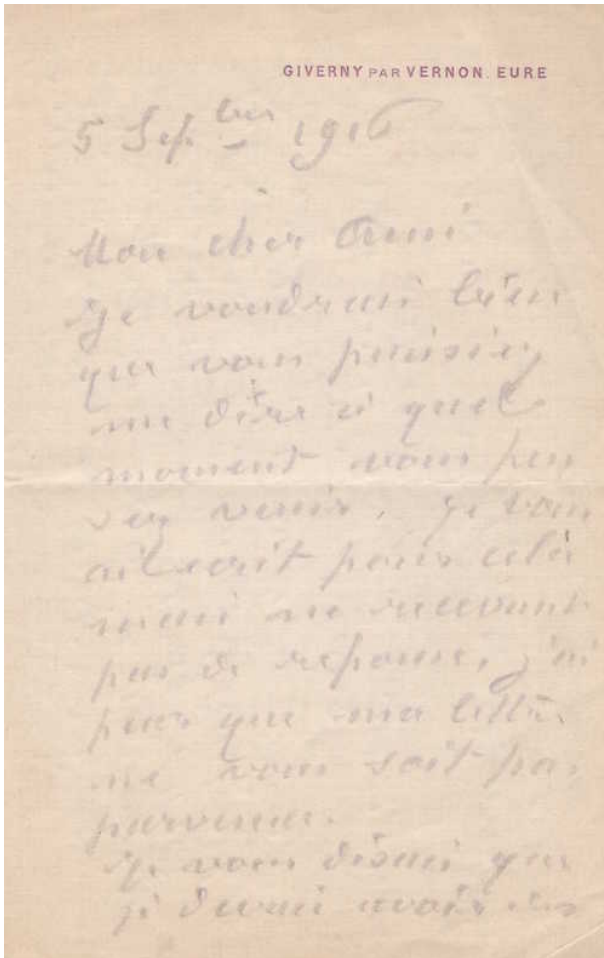 GIVERNY PAR VERNON. EURE
5 Sepbre 1916
Mon cher Ami
Je voudrai bien
que vous puissiez
me dire à quel
moment vous pen
sez venir. Je vous
ai ecrit pour cela
mais ne recevant
pas de reponse, j'ai
peur que ma lettre
ne vous soit pas
parvenue.
Je vous disais que
je devais avoir des